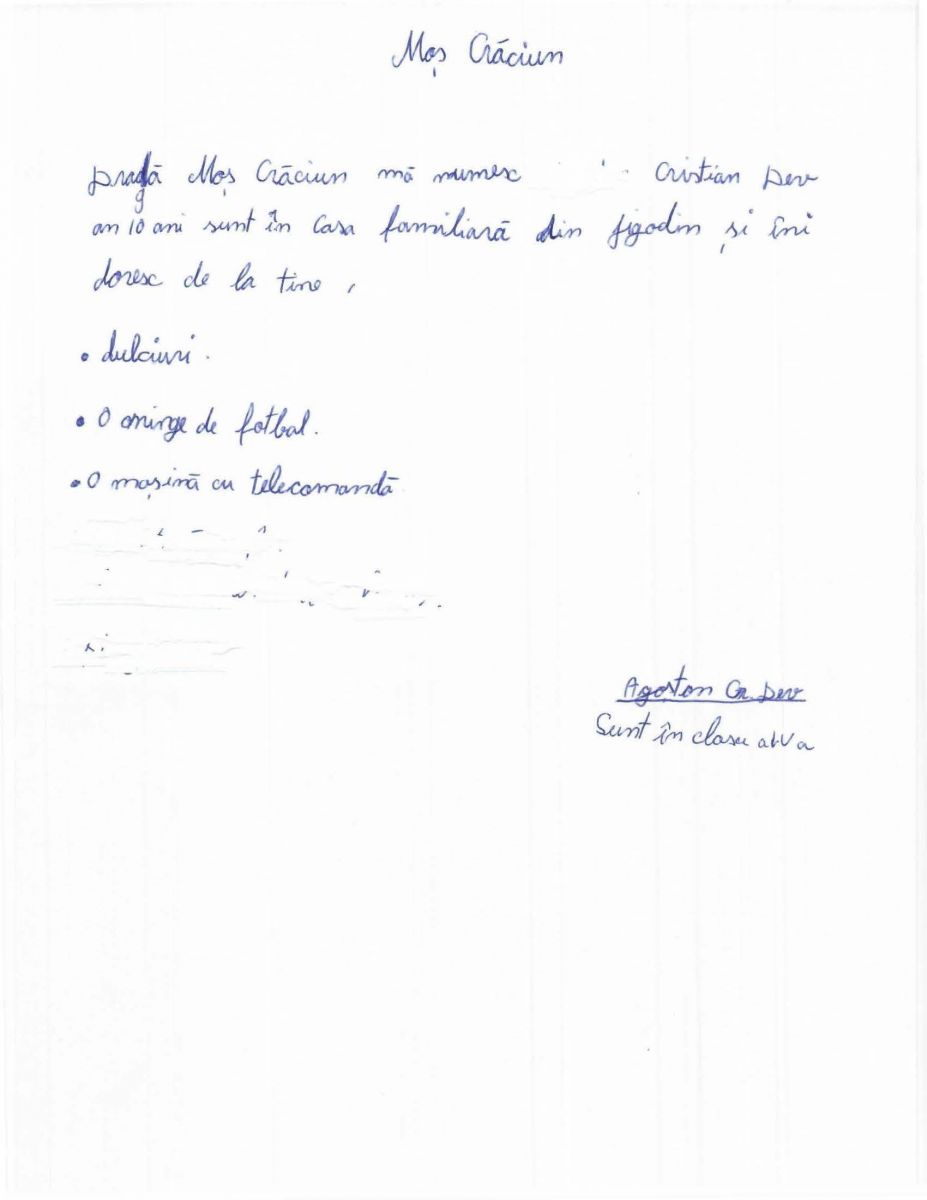 Moș Crăciun
Dragă Moș Crăciun mă numesc Cristian Dev
an 10 ani sunt în Casa familiară din Jigodin și îni
doresc de la tine,
• dulciuri.
• O minge de fotbal.
• O mașină cu telecomandă
Agoston Cr. Dev
Sunt în clasa a IV a